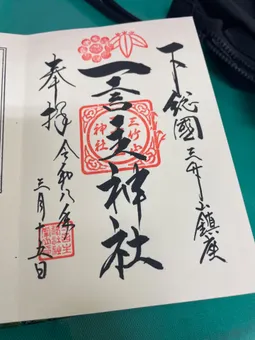 下総國三竹山鎮座
一言主神社
三竹山
神社
奉拝
令和八年
三月十五日